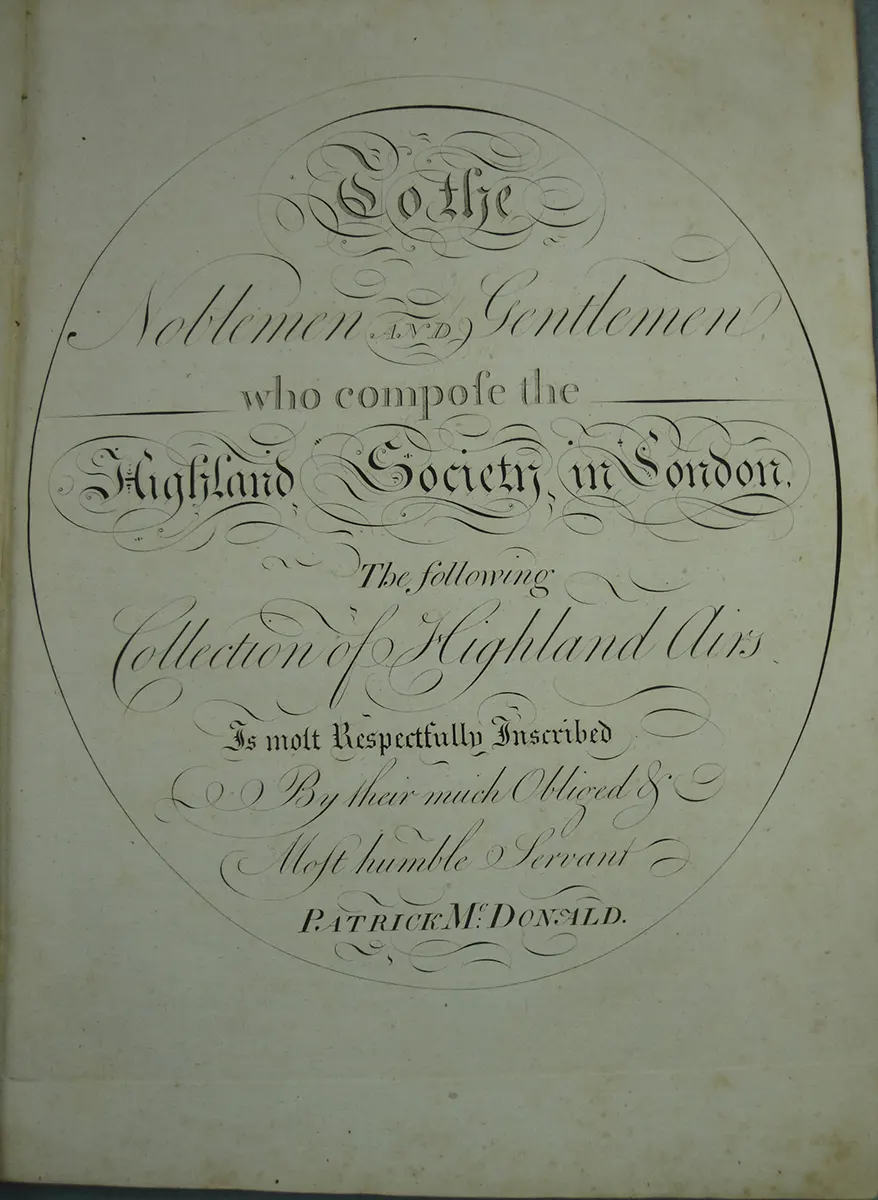 To the
Noblemen AND Gentlemen
who compoſe the
Highland Society, in London.
The following
Collection of Highland Airs
Is moſt Respectfully Inscribed
By their much Obliged &
Moſt humble Servant
PATRICK Mᶜ. DONALD.